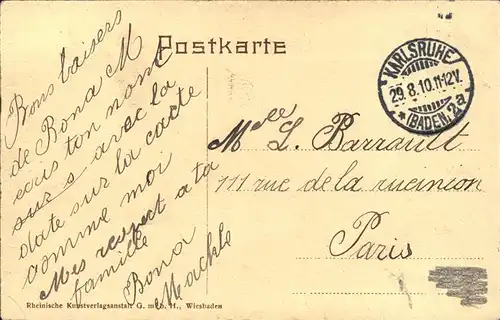 Postkarte
KARLSRUHE
29.8.10.11-12V.
* (BADEN). 2a
Bons baisers
de Bona M
ecris ton nom
sur s avec la
date sur la carte
comme moi
Mes respect a ta
famille
Bona
Mackle
Mlle L. Barrault
111 rue de la
Paris
Rheinische Kunstverlagsanstalt G. m. b. H., Wiesbaden